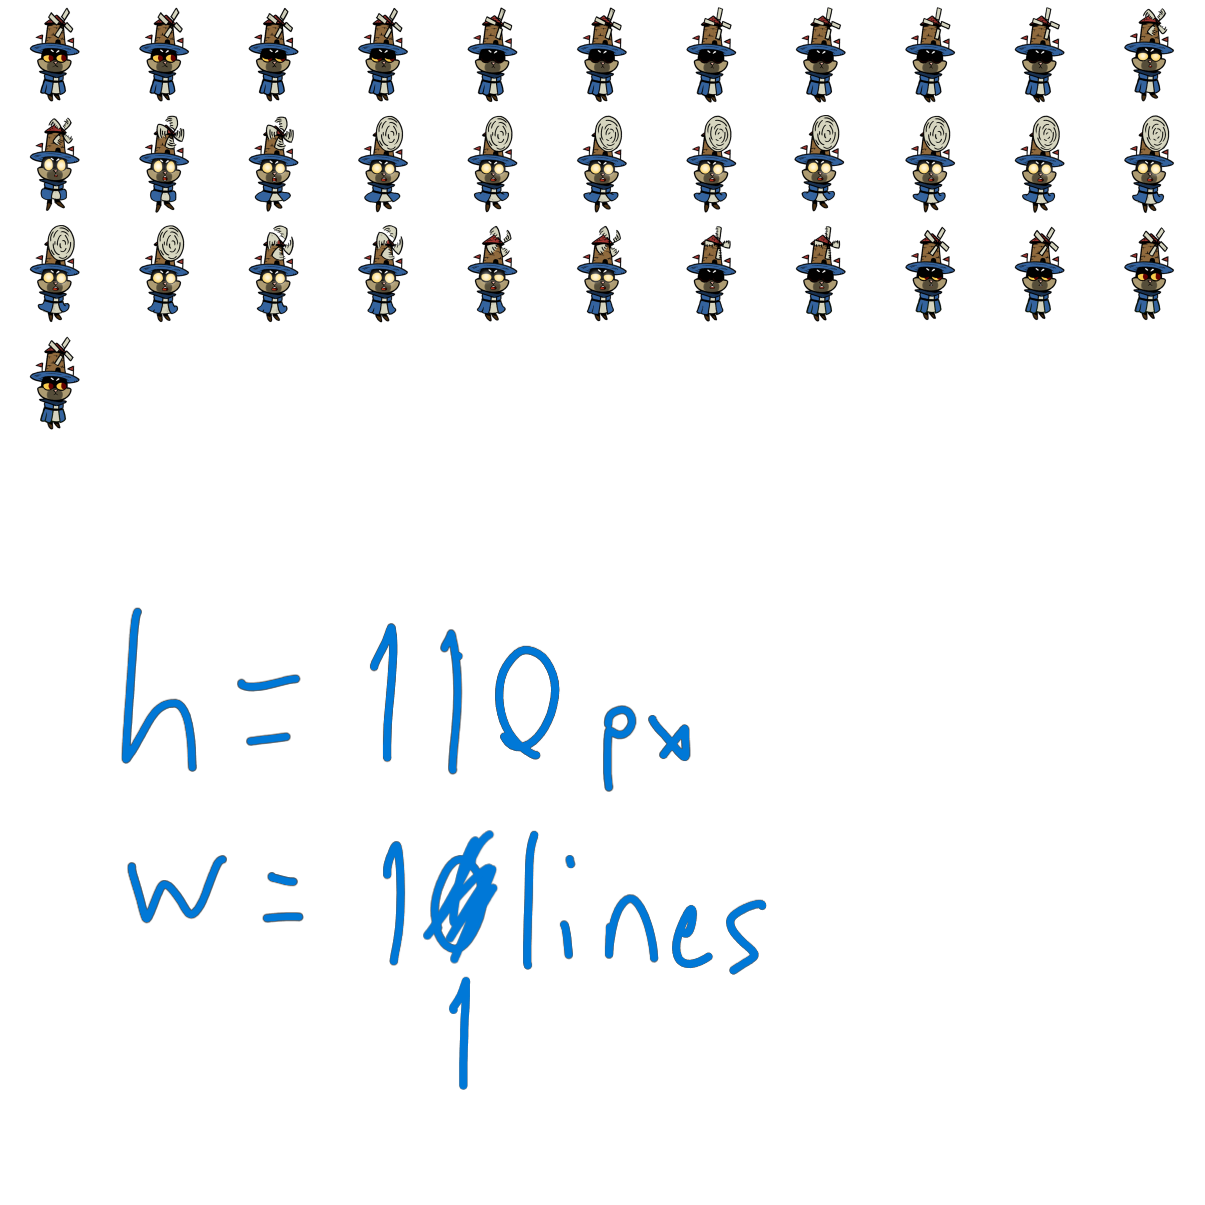 h = 110 px
w = 1 lines
1